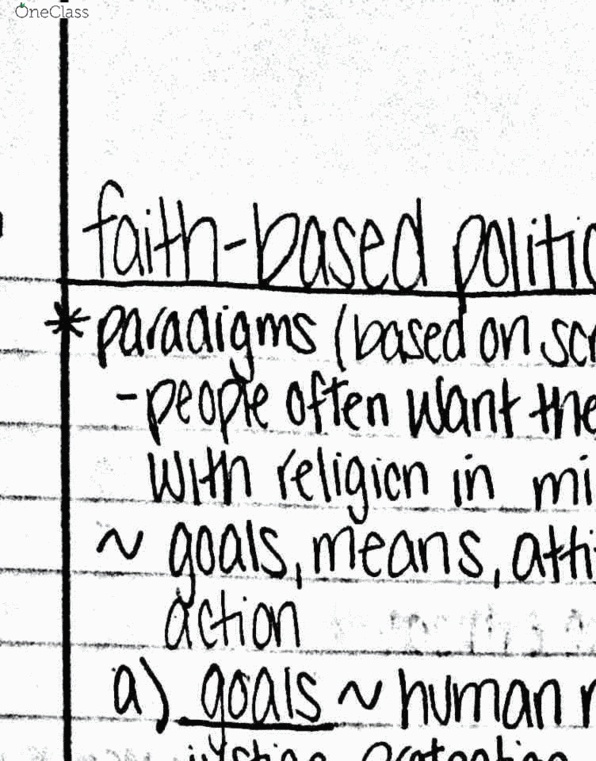 OneClass
faith-based politic
* paradigms (based on scr
- people often want the
with religion in mi
~ goals, means, atti
action
a) goals ~ human r
justice protection